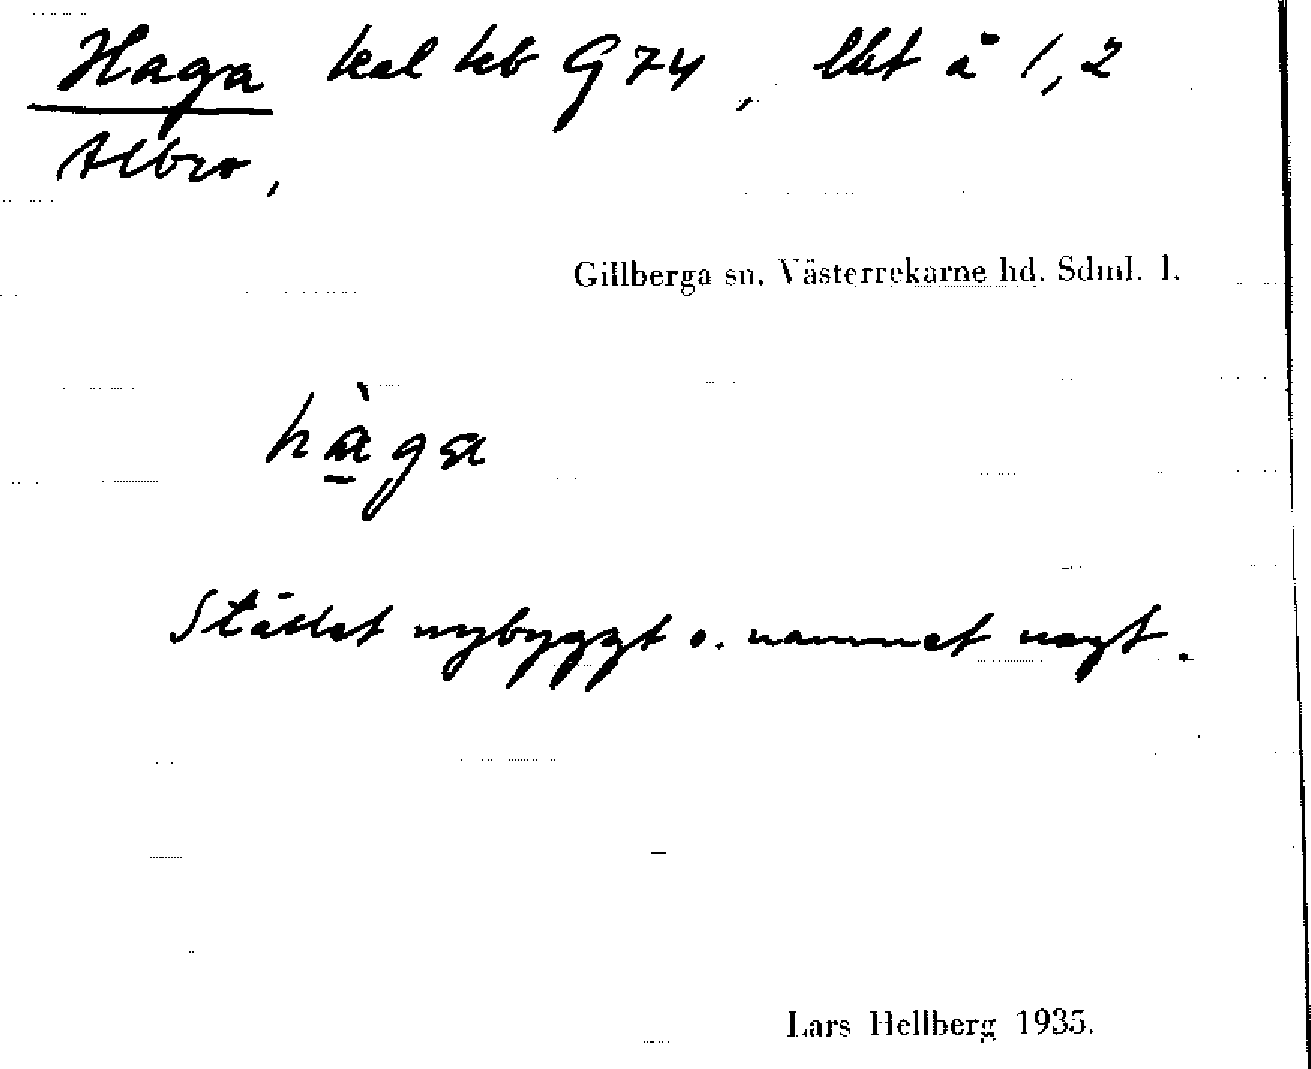 Haga kal kb G74, lht å 1,2
Albro,
Gillberga sn. Västerrekarne hd. Sdml. l.
hàga
Stället nybyggt o. namnet nogt.
Lars Hellberg 1935.